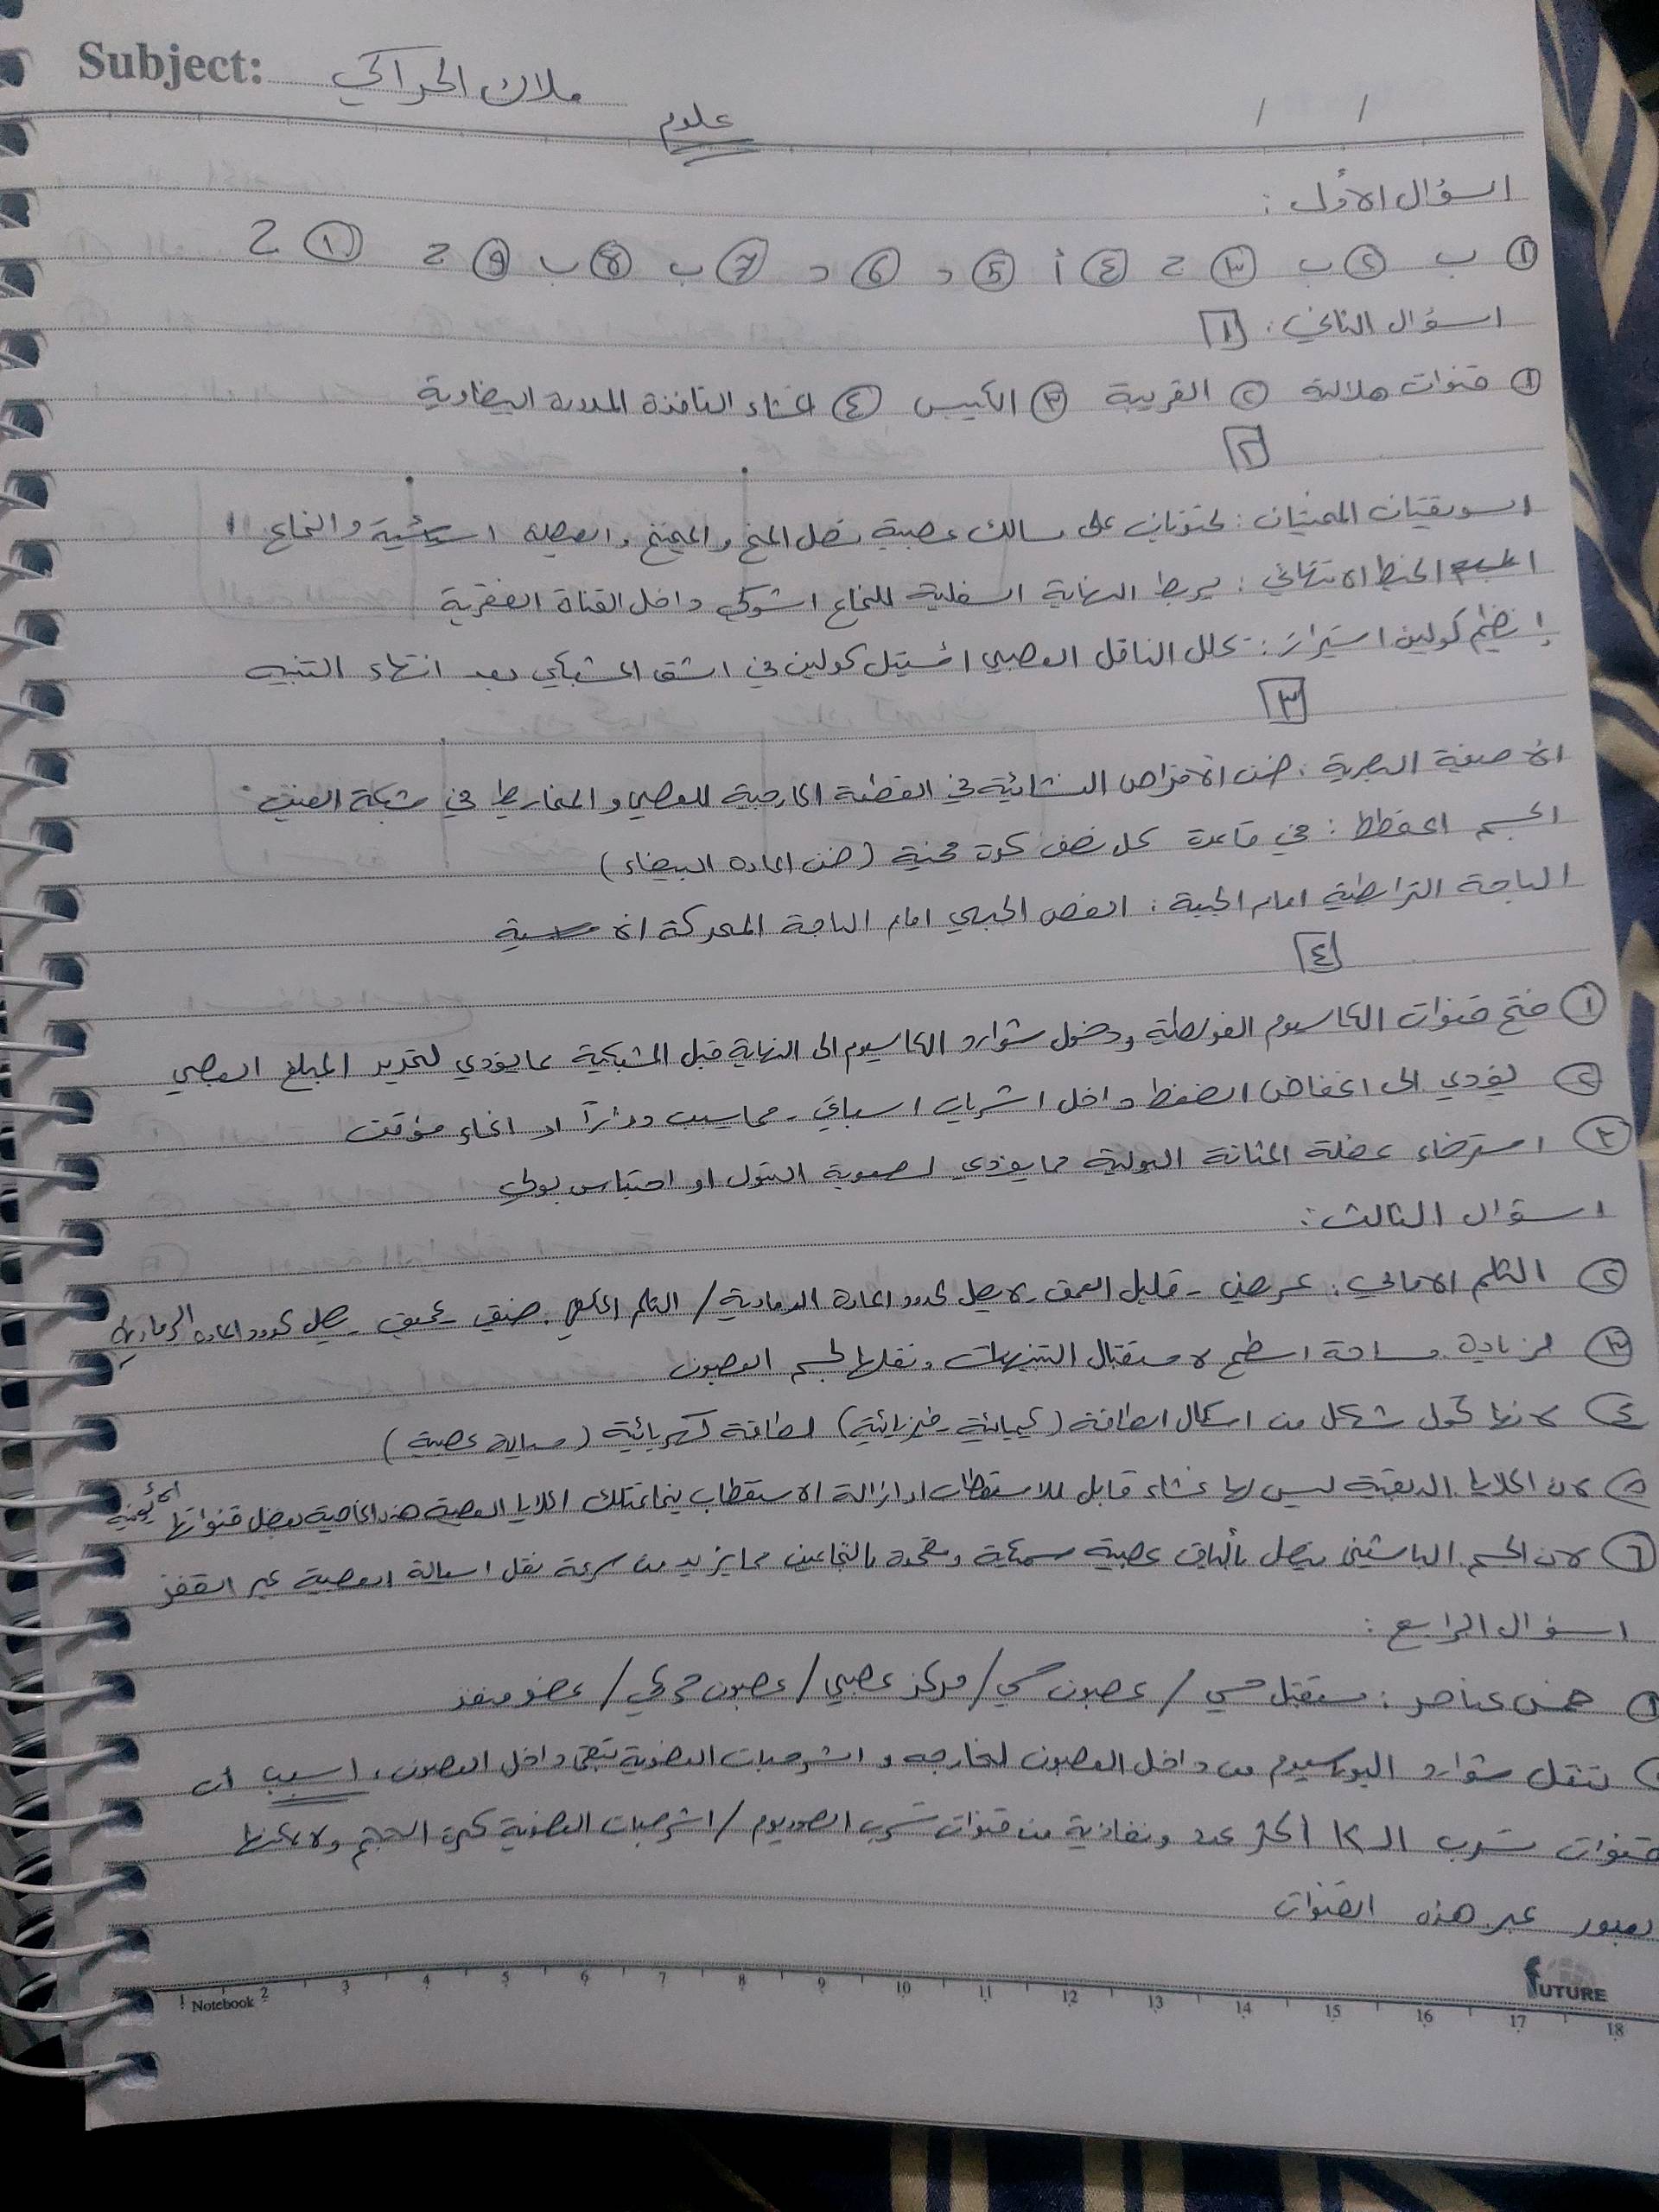 Subject: ملاك الحراكي
علوم
/ /
السؤال الأول :
① ب ② ب ③ ج ④ أ ⑤ د ⑥ د ⑦ ب ⑧ ب ⑨ ج ⑩ ج
السؤال الثاني : 1
① قنوات هلالية ② القريبة ③ الكييس ④ الغشاء النافذة المدورة البيضاوية
2
السويقتان المخيتان : تحتويان على مسالك عصبية تصل المخ والمخيخ والبصلة السيسائية والنخاع
الخيط الانتهائي : يربط النهاية السفلية للنخاع الشوكي داخل القناة الفقرية
إنظيم كولين استيراز : تحلل الناقل العصبي الأستيل كولين في الشق المشبكي بعد انتهاء التنبيه
3
الأصبغة البصرية : ضمن الأقراص الغشائية في القطعة الخارجية للعصي والمخاريط في شبكة العين
الجسم المخطط : في قاعدة كل نصف كرة مخية (ضمن المادة البيضاء)
الباحة الترابطية امام الجبهية : الفص الجبهي امام الباحة المحركة
4
① فتح قنوات الكالسيوم الفولطية ودخول شوارد الكالسيوم الى النهاية قبل المشبكية مما يؤدي لتحرير المبلغ العصبي
② يؤدي الى انخفاض الضغط داخل الشريان السباتي - مما يسبب دواراً او اغماء مؤقت
③ استرخاء عضلة المثانة البولية مما يؤدي لصعوبة التبول او احتباس بولي
السؤال الثالث :
② الثلم الامامي : عريض - قليل العمق - لا يصل لحدود المادة الرمادية / الثلم الخلفي : ضيق - عميق - يصل لحدود المادة الرمادية
③ لزيادة مساحة السطح لاستقبال التنبيهات ونقلها لجسم العصبون
④ لانها تحول شكل من اشكال الطاقة (كيميائية - فيزيائية) لطاقة كهربائية (سيالة عصبية)
⑤ لان الخلايا الدبقية ليس لها غشاء قابل للاستقطاب او ازالة الاستقطاب بينما تمتلك الخلايا العصبية هذه الخاصية بفضل قنواتها الأيونية
⑥ لان الجسم الباشيني يتصل بألياف عصبية سميكة ومغمدة بالنخاعين مما يزيد من سرعة نقل السيالة العصبية عبر القفز
السؤال الرابع :
① خمس عناصر : مستقبل حسي / عصبون حسي / مركز عصبي / عصبون حركي / عضو منفذ
تنتقل شوارد البوتاسيوم من داخل العصبون لخارجه و الشرجبات العضوية تبقى داخل العصبون ، السبب أن
قنوات تسرب الـ K أكثر عدد ونفاذية من قنوات تسرب الصوديوم / الشرجبات العضوية كبيرة الحجم ولا يمكنها
العبور عبر هذه القنوات
FUTURE
Notebook 1 2 3 4 5 6 7 8 9 10 11 12 13 14 15 16 17 18